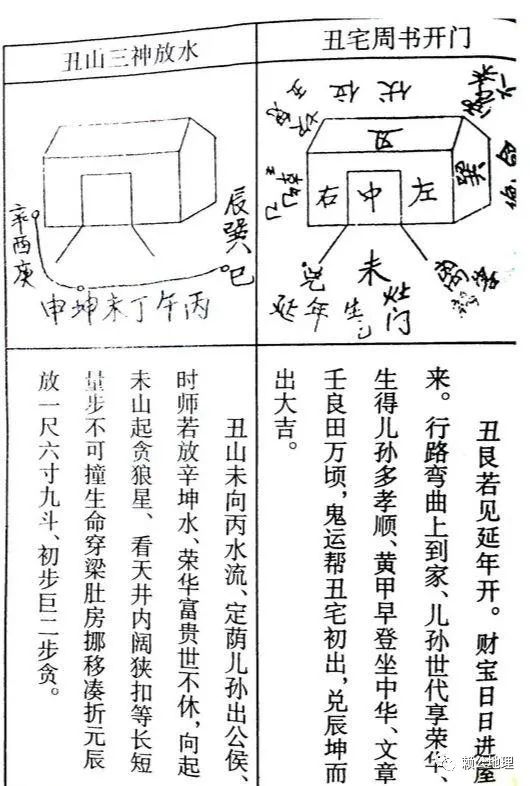 丑宅周书开门
伏位
丑
巽
右 中 左
未
延年 生
灶门
丑艮若见延年开。财宝日日进屋
来。行路弯曲上到家、儿孙世代享荣华、
生得儿孙多孝顺、黄甲早登坐中华、文章
壬良田万顷，鬼运帮丑宅初出，兑辰坤而
出大吉。
丑山三神放水
辰巽巳
辛酉庚
申坤未丁午丙
丑山未向丙水流、定荫儿孙出公侯、
时师若放辛坤水、荣华富贵世不休，向起
未山起贪狼星、看天井内阔狭扣等长短
量步不可撞生命穿梁肚房挪移凑折元辰
放一尺六寸九斗、初步巨二步贪。
赖公地理